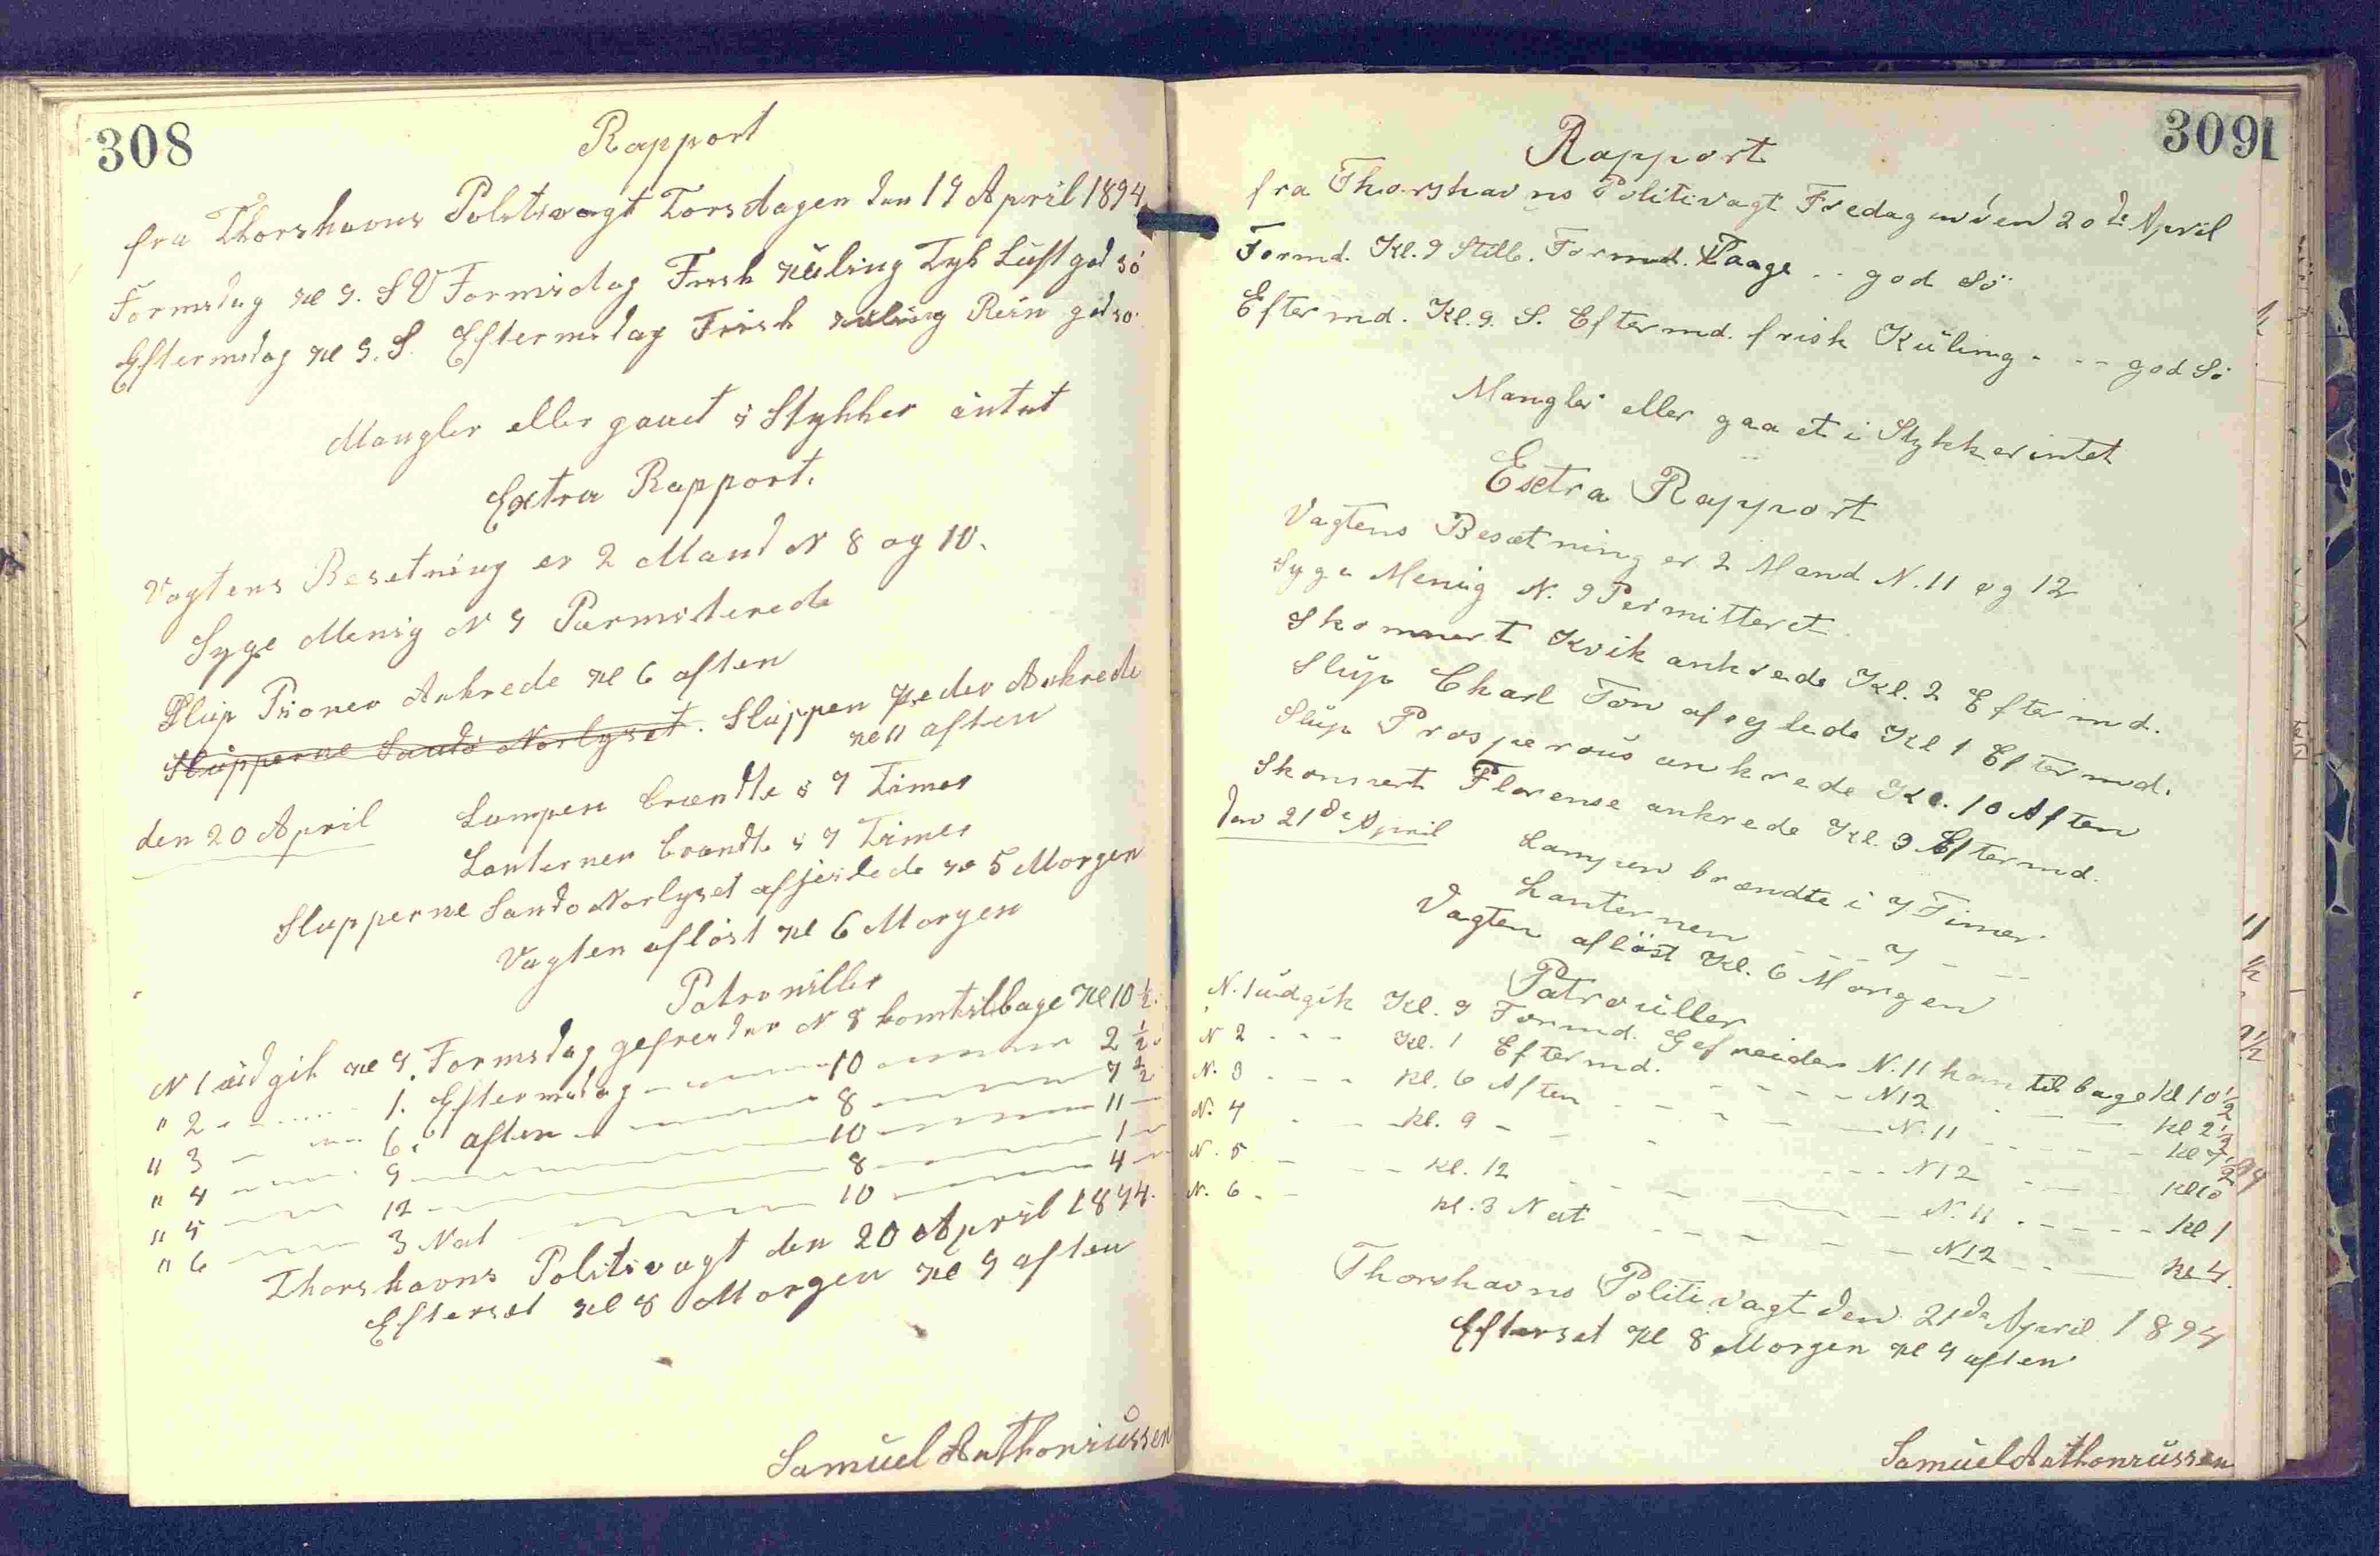 308
Rapport
fra Thorshavns Politivagt Torsdagen den 19 April 1894.
Formidag Kl 9. SV Formidag Frish Küling Tyk Luft god sö
Eftermidag Kl 9. S. Eftermidag Frish Küling Rein god sö
Mangler eller gaaet i Stykker intet
Extra Rapport.
Vagtens Besetning er 2 Mand N 8 og 10.
Syge Menig N 9 Permiterede
Slup Pioner Ankrede Kl 6 aften
Slupperne Sandö Norlyset. Sluppen Peder Ankrede
Kl 11 aften
den 20 April Lampen brændte i 7 Timer
Lanternen brændte i 7 Timer
Slupperne Sando Norlyset afseilede Kl 5 Morgen
Vagten aflöst Kl 6 Morgen
Patrouiller
N 1 üdgik Kl 9. Formidag gefreider N 8 kom tilbage Kl 10 ½
" 2 1. Eftermidag 10 2 ½
" 3 6. aften 8 7 ½
" 4 9 10 11
" 5 12 8 1
" 6 3 Nat 10 4
Thorshavns Politivagt den 20 April 1894.
Efterset Kl 8 Morgen Kl 9 aften
Samüel Anthoniüssen
309
Rapport
fra Thorshavns Politivagt Fredagen den 20de April
Formd. Kl. 9 Stille. Formd. Taage - - god Sö
Eftermd. Kl. 9. S. Eftermd. frisk Küling - - - god Sö
Mangler eller gaaet i Stykker intet
Extra Rapport
Vagtens Besætning er 2 Mand N. 11 og 12
Syge Menig N. 9 Permitteret
Skonnert Kvik ankrede Kl. 2 Eftermd.
Slüp Charl Ton afseglede Kl 1 Eftermd.
Slüp Prosperoüs ankrede Kl. 10 Aften
Skonnert Florense ankrede Kl. 3 Eftermd.
den 21de April Lampen brændte i 7 Timer
Lanternen - - - 7 - -
Vagten aflöst Kl. 6 Morgen
Patroüller
N. 1 üdgik Kl. 9 Formd. Gefreider N. 11 kom tilbage Kl 10 ½
N 2 - - - Kl. 1 Eftermd. - - - - N 12 - - - Kl 2 ½
N. 3 - - - Kl. 6 Aften - - - - - N. 11 - - - - Kl 7 ½
N. 4 - - - Kl. 9 - - - - - - N 12 - - - - Kl 10
N. 5 - - - Kl. 12 - - - - - - N. 11 - - - - - Kl 1
N. 6 - - Kl. 3 Nat - - - - - N 12 - - - Kl 4.
Thorshavns Politivagt den 21de April 1894
Efterset Kl 8 Morgen Kl 9 aften
Samüel Anthoniüssen